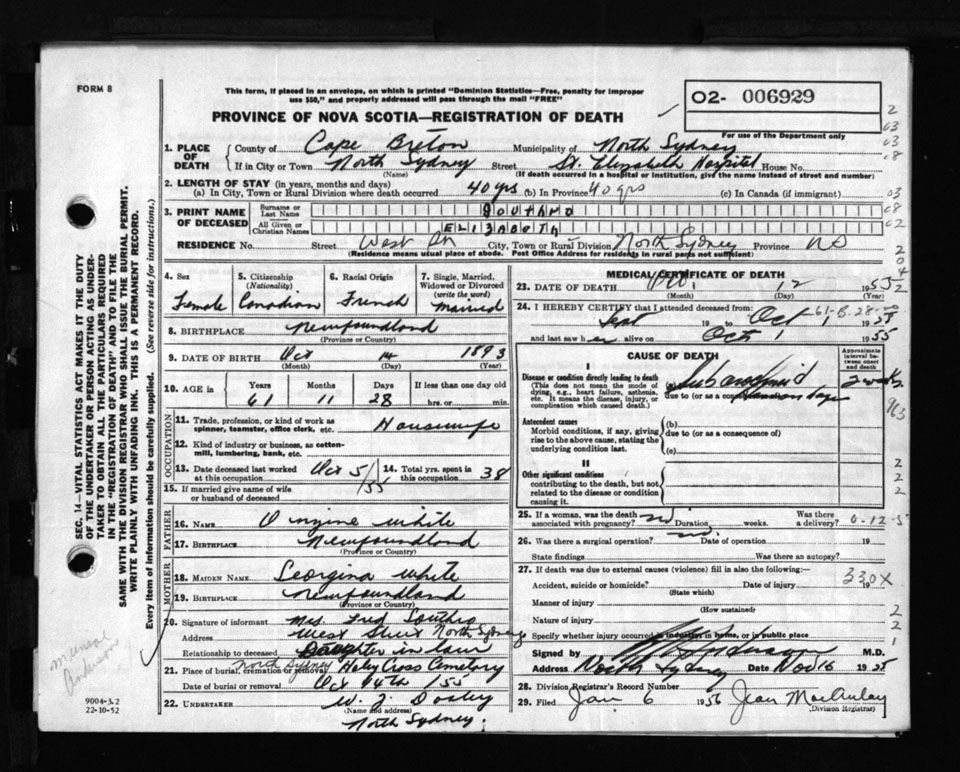 FORM 8
This form, if placed in an envelope, on which is printed "Dominion Statistics—Free, penalty for improper
use $50," and properly addressed will pass through the mail "FREE"
02- 006929
For use of the Department only
PROVINCE OF NOVA SCOTIA—REGISTRATION OF DEATH
1. PLACE OF DEATH County of Cape Breton Municipality of North Sydney
If in City or Town North Sydney Street St. Elizabeth Hospital House No.
(Name) (If death occurred in a hospital or institution, give the name instead of street and number)
2. LENGTH OF STAY (in years, months and days)
(a) In City, Town or Rural Division where death occurred 40 yrs (b) In Province 40 yrs (c) In Canada (if immigrant)
3. PRINT NAME OF DECEASED Surname or Last Name
All Given or Christian Names
RESIDENCE No. Street West St City, Town or Rural Division North Sydney Province NS
(Residence means usual place of abode. Post Office Address for residents in rural parts not sufficient)
4. Sex Female
5. Citizenship (Nationality) Canadian
6. Racial Origin French
7. Single, Married, Widowed or Divorced (write the word) Married
8. BIRTHPLACE Newfoundland
(Province or Country)
9. DATE OF BIRTH Oct 14 1893
(Month) (Day) (Year)
10. AGE in Years Months Days If less than one day old
61 11 28 hrs. or min.
OCCUPATION
11. Trade, profession, or kind of work as spinner, teamster, office clerk, etc. Housewife
12. Kind of industry or business, as cotton-mill, lumbering, bank, etc.
13. Date deceased last worked at this occupation Oct 5/55 14. Total yrs. spent in this occupation 38
15. If married give name of wife or husband of deceased
FATHER
16. NAME White
17. BIRTHPLACE Newfoundland
(Province or Country)
MOTHER
18. MAIDEN NAME Georgina White
19. BIRTHPLACE Newfoundland
(Province or Country)
20. Signature of informant Mrs. Fred
Address West Street North Sydney
Relationship to deceased Daughter in law
21. Place of burial, cremation or removal North Sydney Holy Cross Cemetery
Date of burial or removal Oct 14th 55
22. UNDERTAKER W. J. Dooley
(Name and address)
North Sydney.
MEDICAL CERTIFICATE OF DEATH
23. DATE OF DEATH Oct. 12 1955
(Month) (Day) (Year)
24. I HEREBY CERTIFY that I attended deceased from
61-8-28
Sept 19 to Oct 1 19
and last saw her alive on Oct 1 1955
CAUSE OF DEATH
Approximate interval between onset and death
I
Disease or condition directly leading to death
(This does not mean the mode of dying, e.g., heart failure, asthenia, etc. It means the disease, injury, or complication which caused death.)
(a) Subarachnoid 2 weeks
due to (or as a consequence of)
Antecedent causes
Morbid conditions, if any, giving rise to the above cause, stating the underlying condition last.
(b)
due to (or as a consequence of)
(c)
II
Other significant conditions
contributing to the death, but not related to the disease or condition causing it.
25. If a woman, was the death associated with pregnancy? no Duration weeks. Was there a delivery?
26. Was there a surgical operation? no. Date of operation 19
State findings Was there an autopsy?
27. If death was due to external causes (violence) fill in also the following:—
330X
Accident, suicide or homicide? Date of injury 19
(State which)
Manner of injury
(How sustained)
Nature of injury
Specify whether injury occurred in industry, in home, or in public place
Signed by M.D.
Address North Sydney Date Nov 16 19
28. Division Registrar's Record Number
29. Filed Jan 6 1956 Jean MacAulay
(Division Registrar)
SEC. 14—VITAL STATISTICS ACT MAKES IT THE DUTY
OF THE UNDERTAKER OR PERSON ACTING AS UNDER-
TAKER TO OBTAIN ALL THE PARTICULARS REQUIRED
IN THE "REGISTRATION OF DEATH" AND TO FILE THE
SAME WITH THE DIVISION REGISTRAR WHO SHALL ISSUE THE BURIAL PERMIT.
WRITE PLAINLY WITH UNFADING INK. THIS IS A PERMANENT RECORD.
Every item of information should be carefully supplied. (See reverse side for instructions.)
9004-3.2
22-10-52